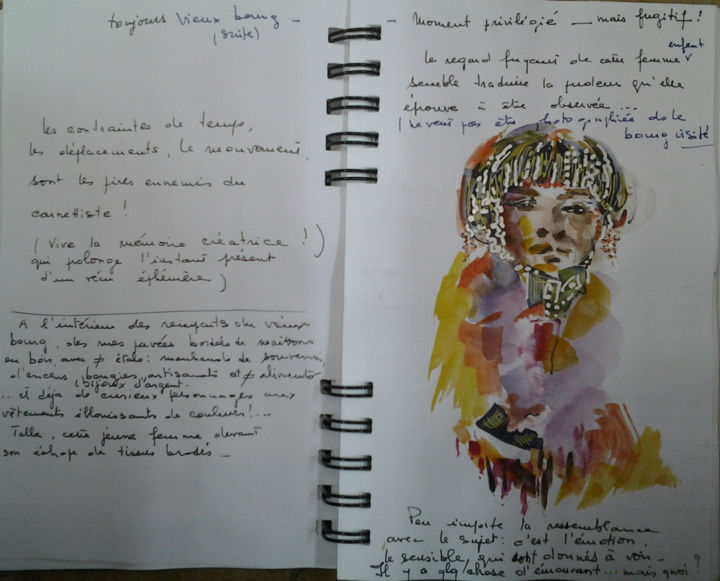 toujours vieux bourg -
(suite)
les contraintes de temps,
les déplacements, le mouvement,
sont les pires ennemis du
carnettiste !
(Vive la mémoire créatrice !)
qui prolonge l'instant présent
d'un récit éphémère)
A l'intérieur des remparts du vieux
bourg, des rues pavées bordées de maisons
en bois, avec ≠ étals : marchands de souvenirs,
d'encens, bougies, artisanats et ≠ aliments
(bijoux d'argent.
... et déjà de curieux personnages aux
vêtements éblouissants de couleurs !...
Telle, cette jeune femme devant
son échope de tissus brodés -
- Moment privilégié - mais fugitif !
enfant
le regard fuyant de cette femme
semble traduire la pudeur qu'elle
éprouve à être observée ...
(ne veut pas être photographiée de le
bourg visité
Peu importe la ressemblance
avec le sujet : c'est l'émotion,
le sensible, qui sont donnés à voir -
Il y a qlq/chose d'émouvant ... mais quoi ?